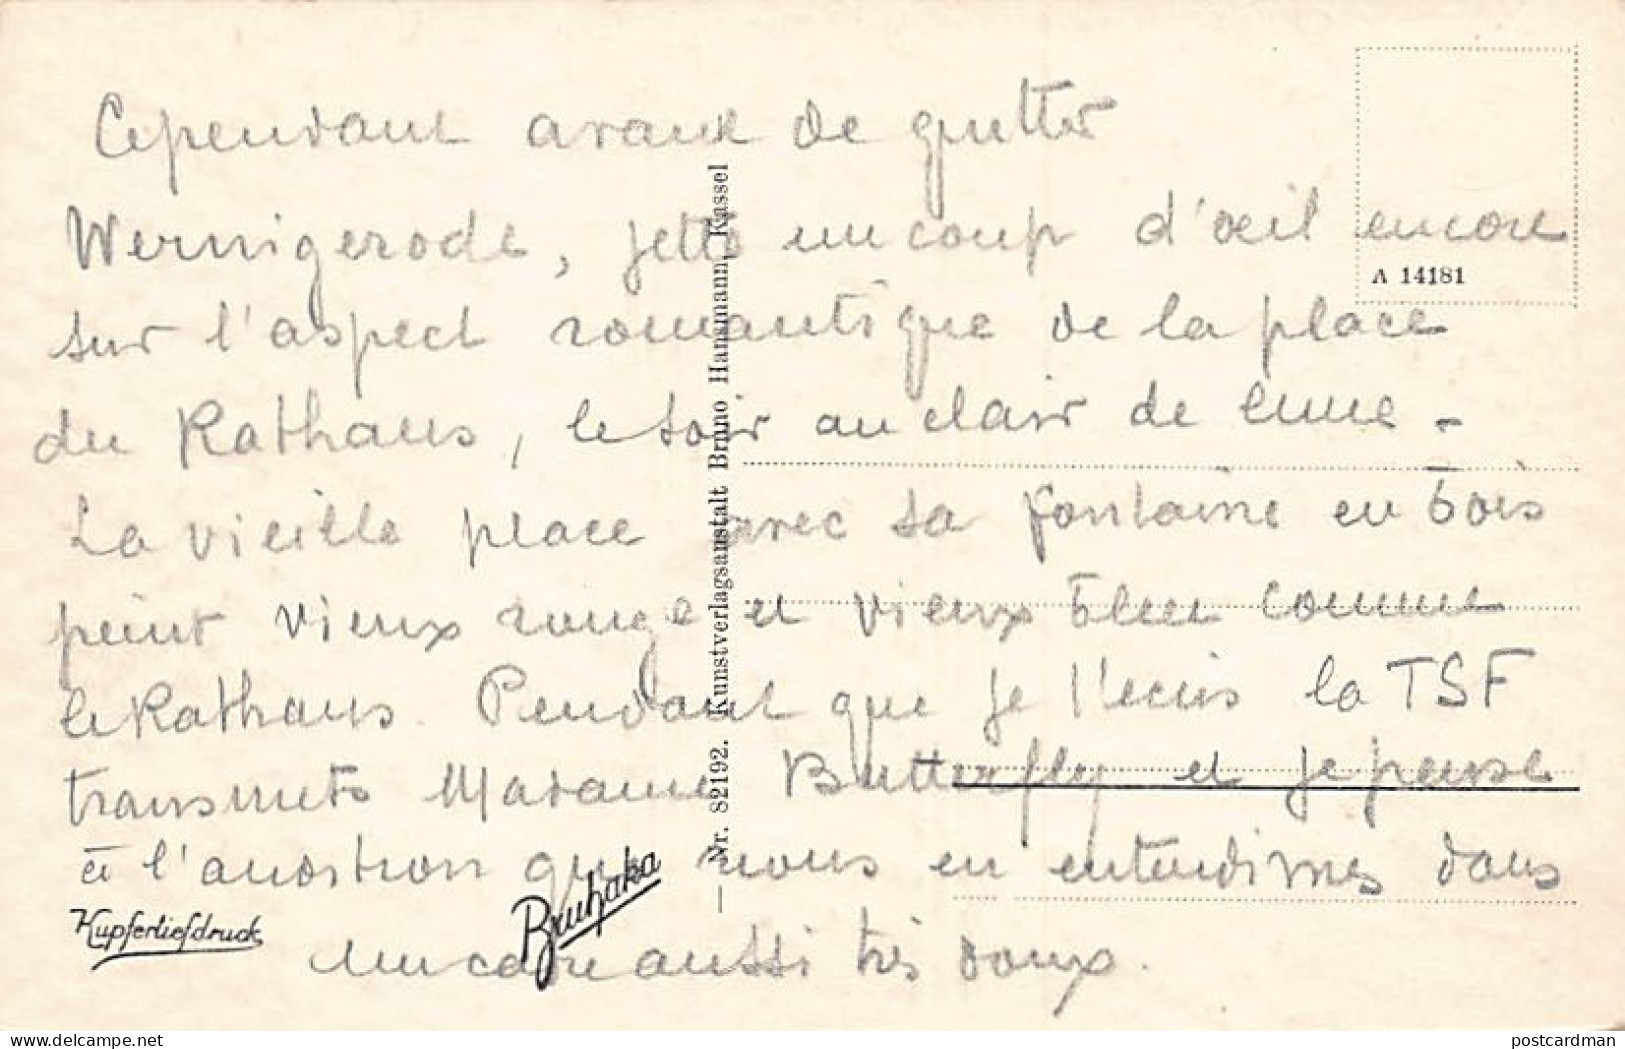 Cependant avant de quitter
Wernigerode, jette un coup d'œil encore
A 14181
sur l'aspect romantique de la place
du Rathaus, le soir au clair de lune -
La vieille place avec sa fontaine en bois
peint vieux rouge et vieux bleu comme
le Rathaus. Pendant que je t'écris la TSF
transmets Madame Butterfly et je pense
à l'audition que nous en entendîmes dans
un cadre aussi très doux.
Kupfertiefdruck
Bruhaka
— Nr. 82192. Kunstverlagsanstalt Bruno Hansmann, Kassel
postcardman
https://www.delcampe.net